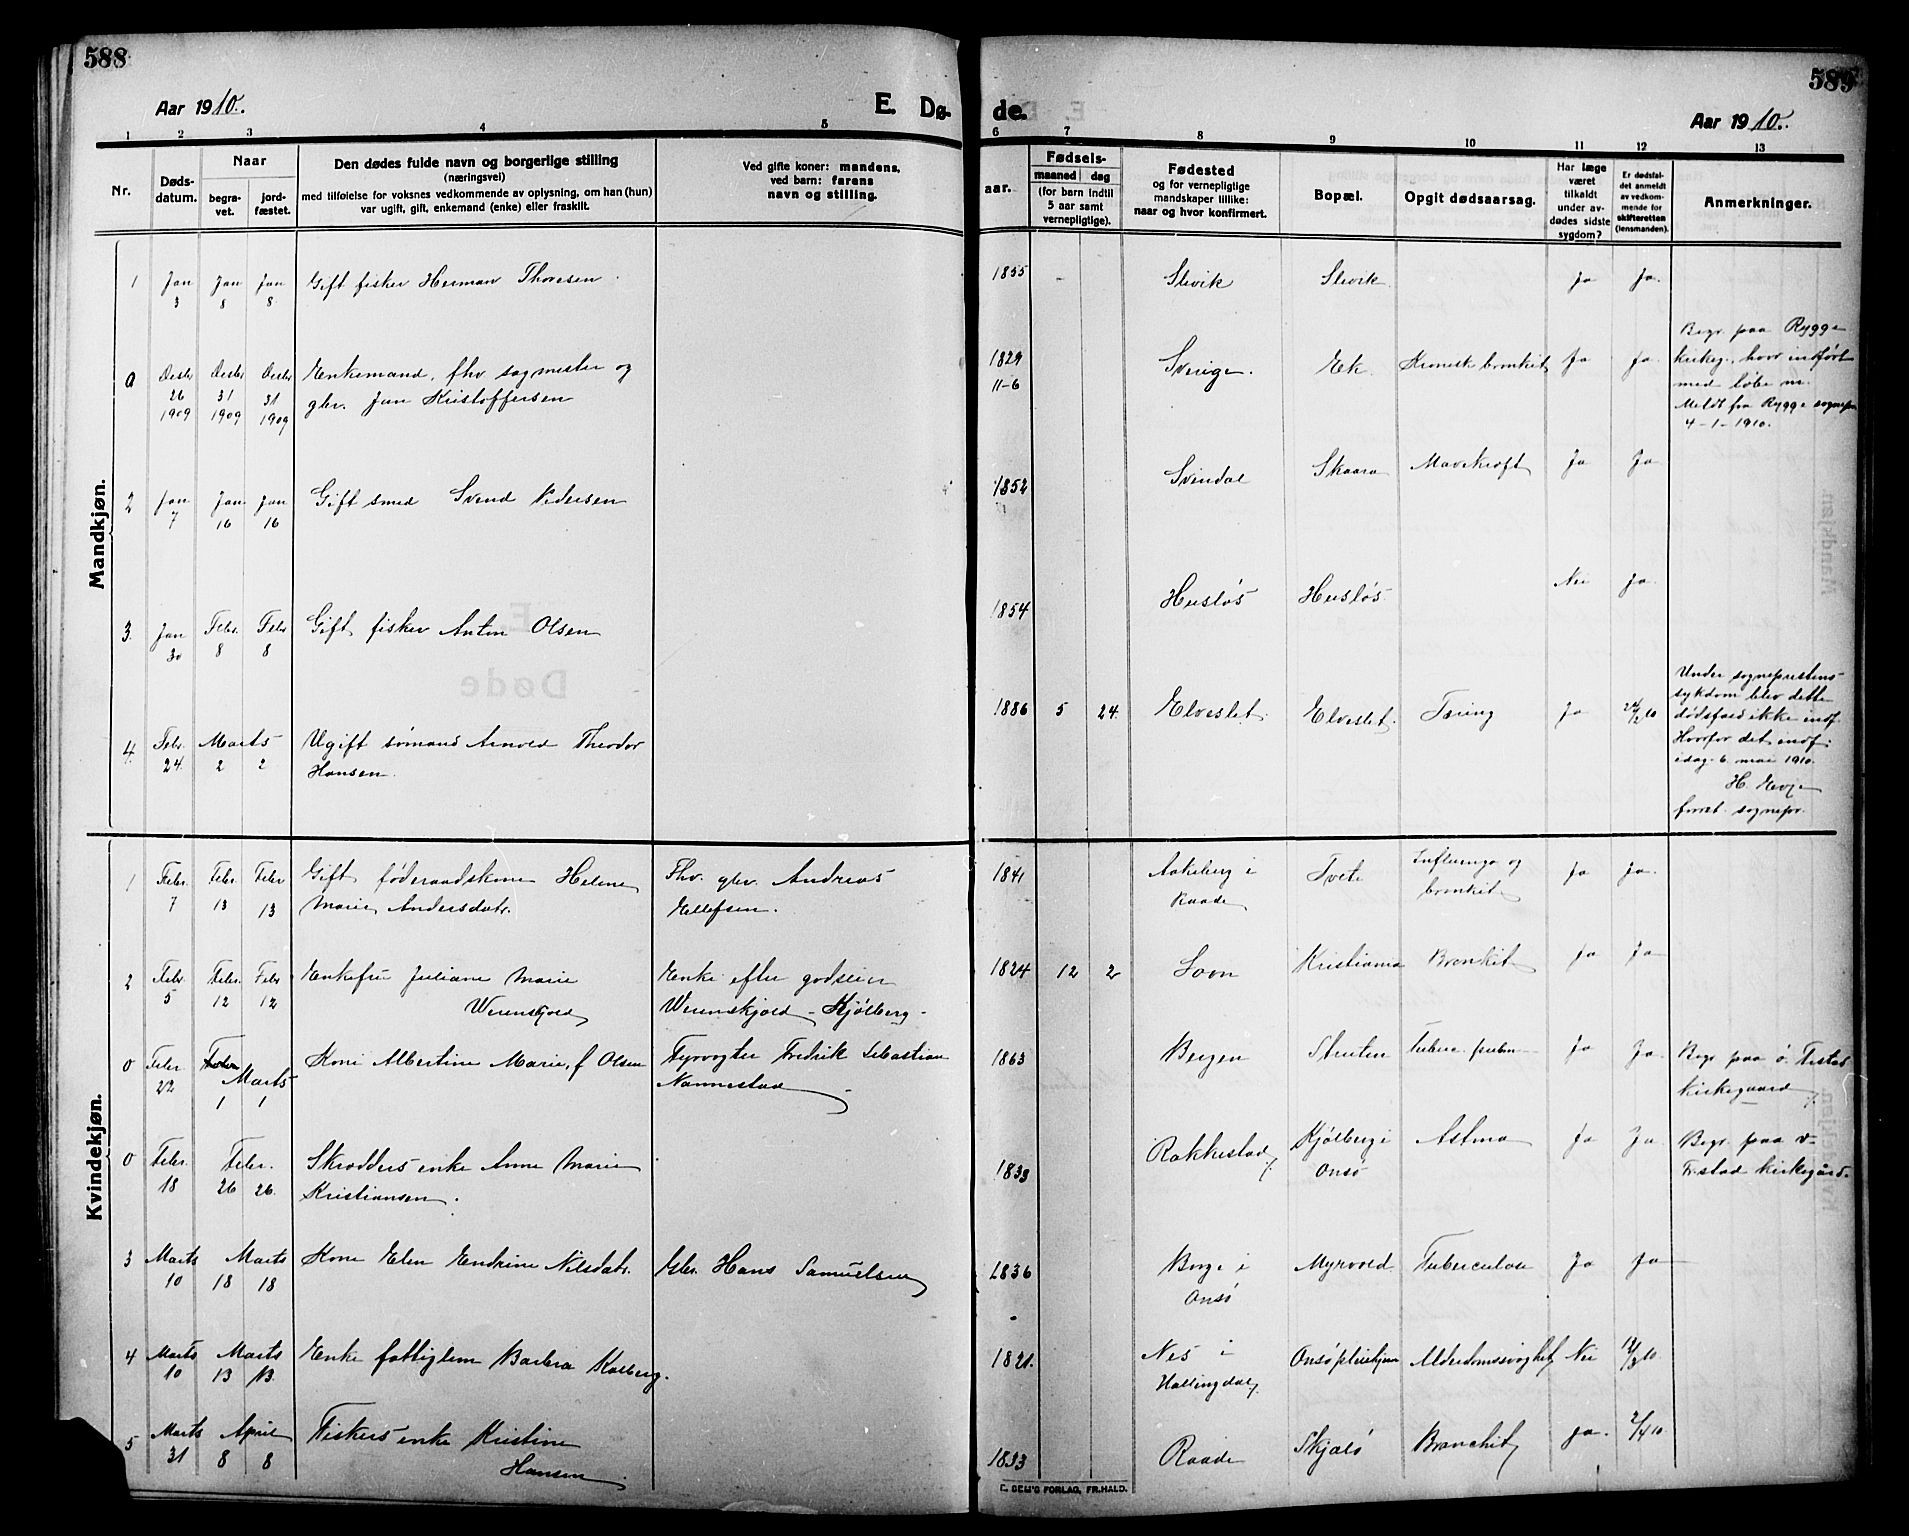 588
Aar 1910.
E. Dø-
1 2 3 4 5
Nr.
Døds-
datum.
Naar
begra-
vet.
jord-
fæstet.
Den dødes fulde navn og borgerlige stilling
(næringsvei)
med tilføielse for voksnes vedkommende av oplysning, om han (hun)
var ugift, gift, enkemand (enke) eller fraskilt.
Ved gifte koner: mandens,
ved barn: farens
navn og stilling.
Mandkjøn.
1 Jan 3 Jan 8 Jan 8 Gift fisker Herman Thoresen
0 Desbr 26 1909 Desbr 31 1909 Desbr 31 1909 Enkemand, fhv. sagmester og
gbr. Jan Kristoffersen
2 Jan 7 Jan 16 Jan 16 Gift smed Svend Pedersen
3. Jan 30 Febr. 8 Febr 8 Gift fisker Anton Olsen
4. Febr. 24. Marts 2 2 Ugift sømand Arnold Theodor
Hansen.
Kvindekjøn.
1 Febr. 7 Febr. 13 Febr 13 Gift føderaadskone Helene
Marie Andersdatr.
Fhv. gbr. Andreas
Ellefsen.
2 Febr. 5 Febr. 12 Febr 12 Enkefru Juliane Marie
Werenskjold
Enke efter godseier
Werenskjold - Kjølberg -
0 Febr. 22 Marts 1 1 Kone Albertine Marie, f. Olsen
Fyrvogter Fredrik Sebastian
Nannestad
0 Febr. 18 Febr. 26 26. Skrædders enke Anne Marie
Kristiansen.
3 Marts 10 Marts 18 18 Kone Elen Endrine Nilsdatr.
Gbr. Hans Samuelsen
4 Marts 10 Marts 13 13. Enke fattiglem Barbra Kolberg.
5 Marts 31 April 8 8 Fiskers enke Kristine
Hansen
589
de.
Aar 1910.
6 7 8 9 10 11 12 13
aar.
Fødsels-
maaned dag
(for barn indtil
5 aar samt
vernepligtige).
Fødested
og for vernepligtige
mandskaper tillike:
naar og hvor konfirmert.
Bopæl.
Opgit dødsaarsag.
Har læge
været
tilkaldt
under av-
dødes sidste
sygdom?
Er dødsfal-
det anmeldt
av vedkom-
mende for
skifteretten
(lensmanden).
Anmerkninger.
1855 - Slevik Slevik. Ja Ja.
1829
11-6
Sverige. Ek. Kronisk bronkit Ja Ja.
Begr. paa Rygge
kirkeg., hvor indført
med løbe nr.
Meldt fra Rygge sognepr.
4-1-1910.
1852 Svindal Skaara Mavekræft Ja Ja
1854 Husløs Husløs. Nei Ja.
1886 5 24. Elveslet. Elveslet. Tæring Ja 24/2 10
Under sogneprestens
sykdom blev dette
dødsfald ikke indf.
Hvorfor det indf.
idag 6. mai 1910.
H. Evje
const. sognepr.
1841 Aakeberg i
Raade
Tvete Influenza og
bronkit
Ja Ja.
1824 12 2 Soon Kristiania Bronkit Ja Ja
1863 Bergen Struten Tuberc. pulm. Ja Ja.
Begr. paa ø. Fr.stad
kirkegaard
1833 Rakkestad Kjølberg i
Onsø
Astma Ja Ja.
Begr. paa v.
Fr.stad kirkegård.
1836 Borge i
Onsø
Myrvold Tuberculose Ja Ja
1821. Nes i
Hallingdal
Onsø pleiehjem Alderdomssvaghet Nei 12/3 10.
1833 Raade Skjælø Bronchit Ja. 2/4 10.
E. SEM'S FORLAG, FR.HALD.